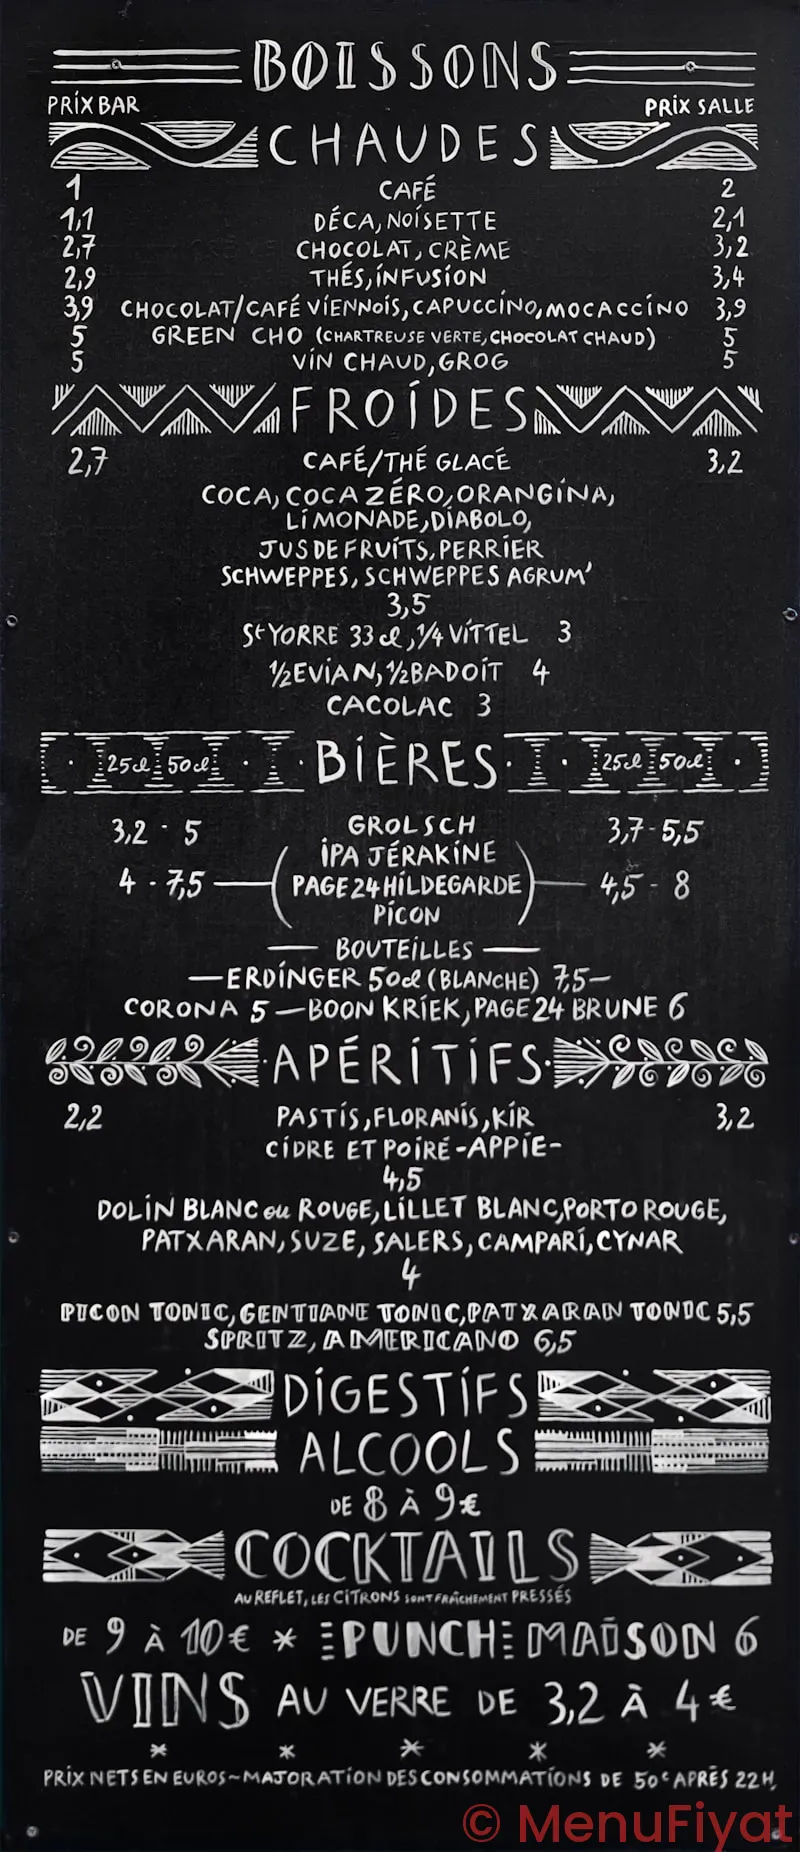 BOISSONS
PRIX BAR PRIX SALLE
CHAUDES
1 CAFÉ 2
1,1 DÉCA, NOISETTE 2,1
2,7 CHOCOLAT, CRÈME 3,2
2,9 THÉS, INFUSION 3,4
3,9 CHOCOLAT/CAFÉ VIENNOIS, CAPUCCINO, MOCACCINO 3,9
5 GREEN CHO (CHARTREUSE VERTE, CHOCOLAT CHAUD) 5
5 VIN CHAUD, GROG 5
FROIDES
2,7 CAFÉ/THÉ GLACÉ 3,2
COCA, COCA ZÉRO, ORANGINA,
LIMONADE, DIABOLO,
JUS DE FRUITS, PERRIER
SCHWEPPES, SCHWEPPES AGRUM'
3,5
St YORRE 33 cl, 1/4 VITTEL 3
1/2 EVIAN, 1/2 BADOIT 4
CACOLAC 3
25cl 50cl BIÈRES 25cl 50cl
3,2 - 5 GROLSCH 3,7 - 5,5
IPA JÉRAKINE
4 - 7,5 — (PAGE 24 HILDEGARDE) — 4,5 - 8
PICON
— BOUTEILLES —
— ERDINGER 50cl (BLANCHE) 7,5 —
CORONA 5 — BOON KRIEK, PAGE 24 BRUNE 6
APÉRITIFS
2,2 PASTIS, FLORANIS, KIR 3,2
CIDRE ET POIRÉ - APPIE -
4,5
DOLIN BLANC ou ROUGE, LILLET BLANC, PORTO ROUGE,
PATXARAN, SUZE, SALERS, CAMPARI, CYNAR
4
PICON TONIC, GENTIANE TONIC, PATXARAN TONIC 5,5
SPRITZ, AMERICANO 6,5
DIGESTIFS
ALCOOLS
DE 8 À 9€
COCKTAILS
AU REFLET, LES CITRONS SONT FRAÎCHEMENT PRESSÉS
DE 9 À 10€ * PUNCH MAISON 6
VINS AU VERRE DE 3,2 À 4€
* * * * *
PRIX NETS EN EUROS ~ MAJORATION DES CONSOMMATIONS DE 50c APRÈS 22H.
© MenuFiyat